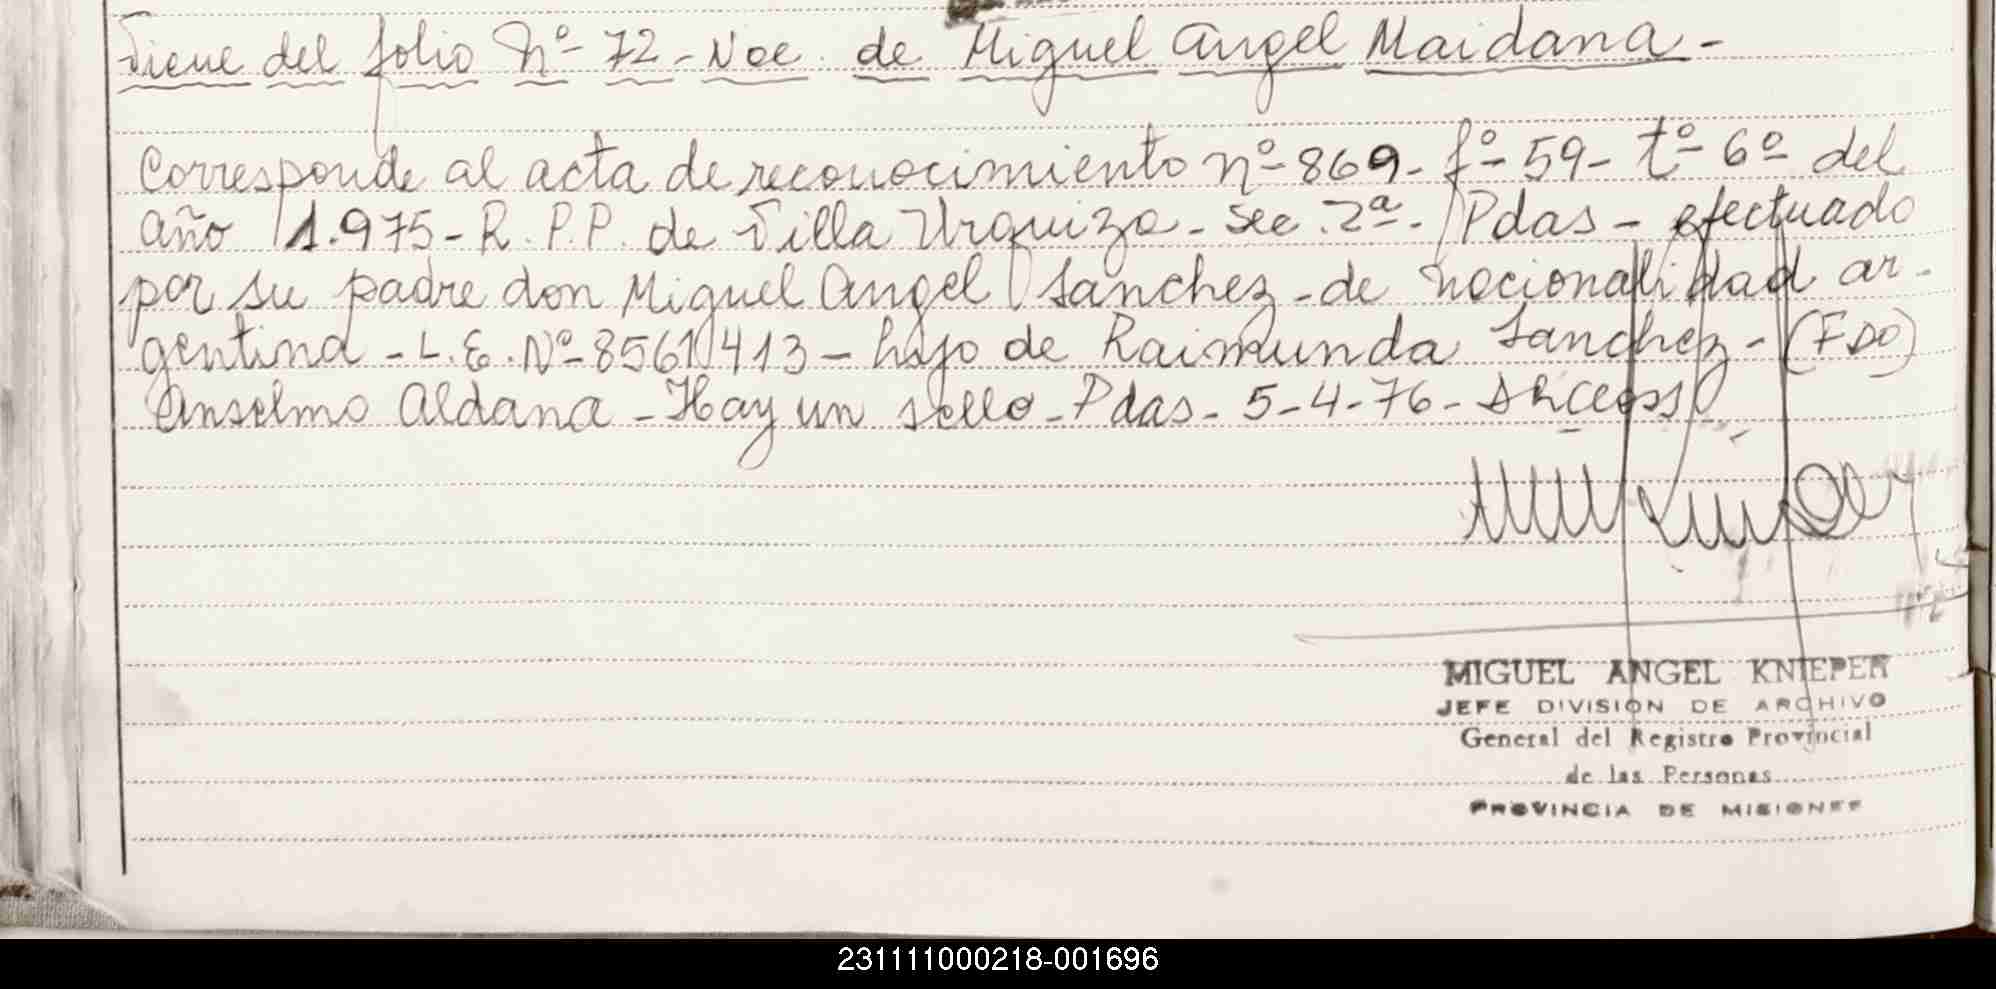 Viene del folio Nº 72 - Noe. de Miguel Angel Maidana -
Corresponde al acta de reconocimiento nº 869 - fº 59 - tº 6º del
año 1.975 - R. P. P. de Villa Urquiza - Sec. 2ª - Pdas - efectuado
por su padre don Miguel Angel Sanchez - de nacionalidad ar-
gentina - L. E. Nº 8561413 - hijo de Raimunda Sanchez - (FDO)
Anselmo Aldana - Hay un sello - Pdas - 5-4-76 -
MIGUEL ANGEL KNIEPER
JEFE DIVISION DE ARCHIVO
General del Registro Provincial
de las Personas
PROVINCIA DE MISIONES
231111000218-001696